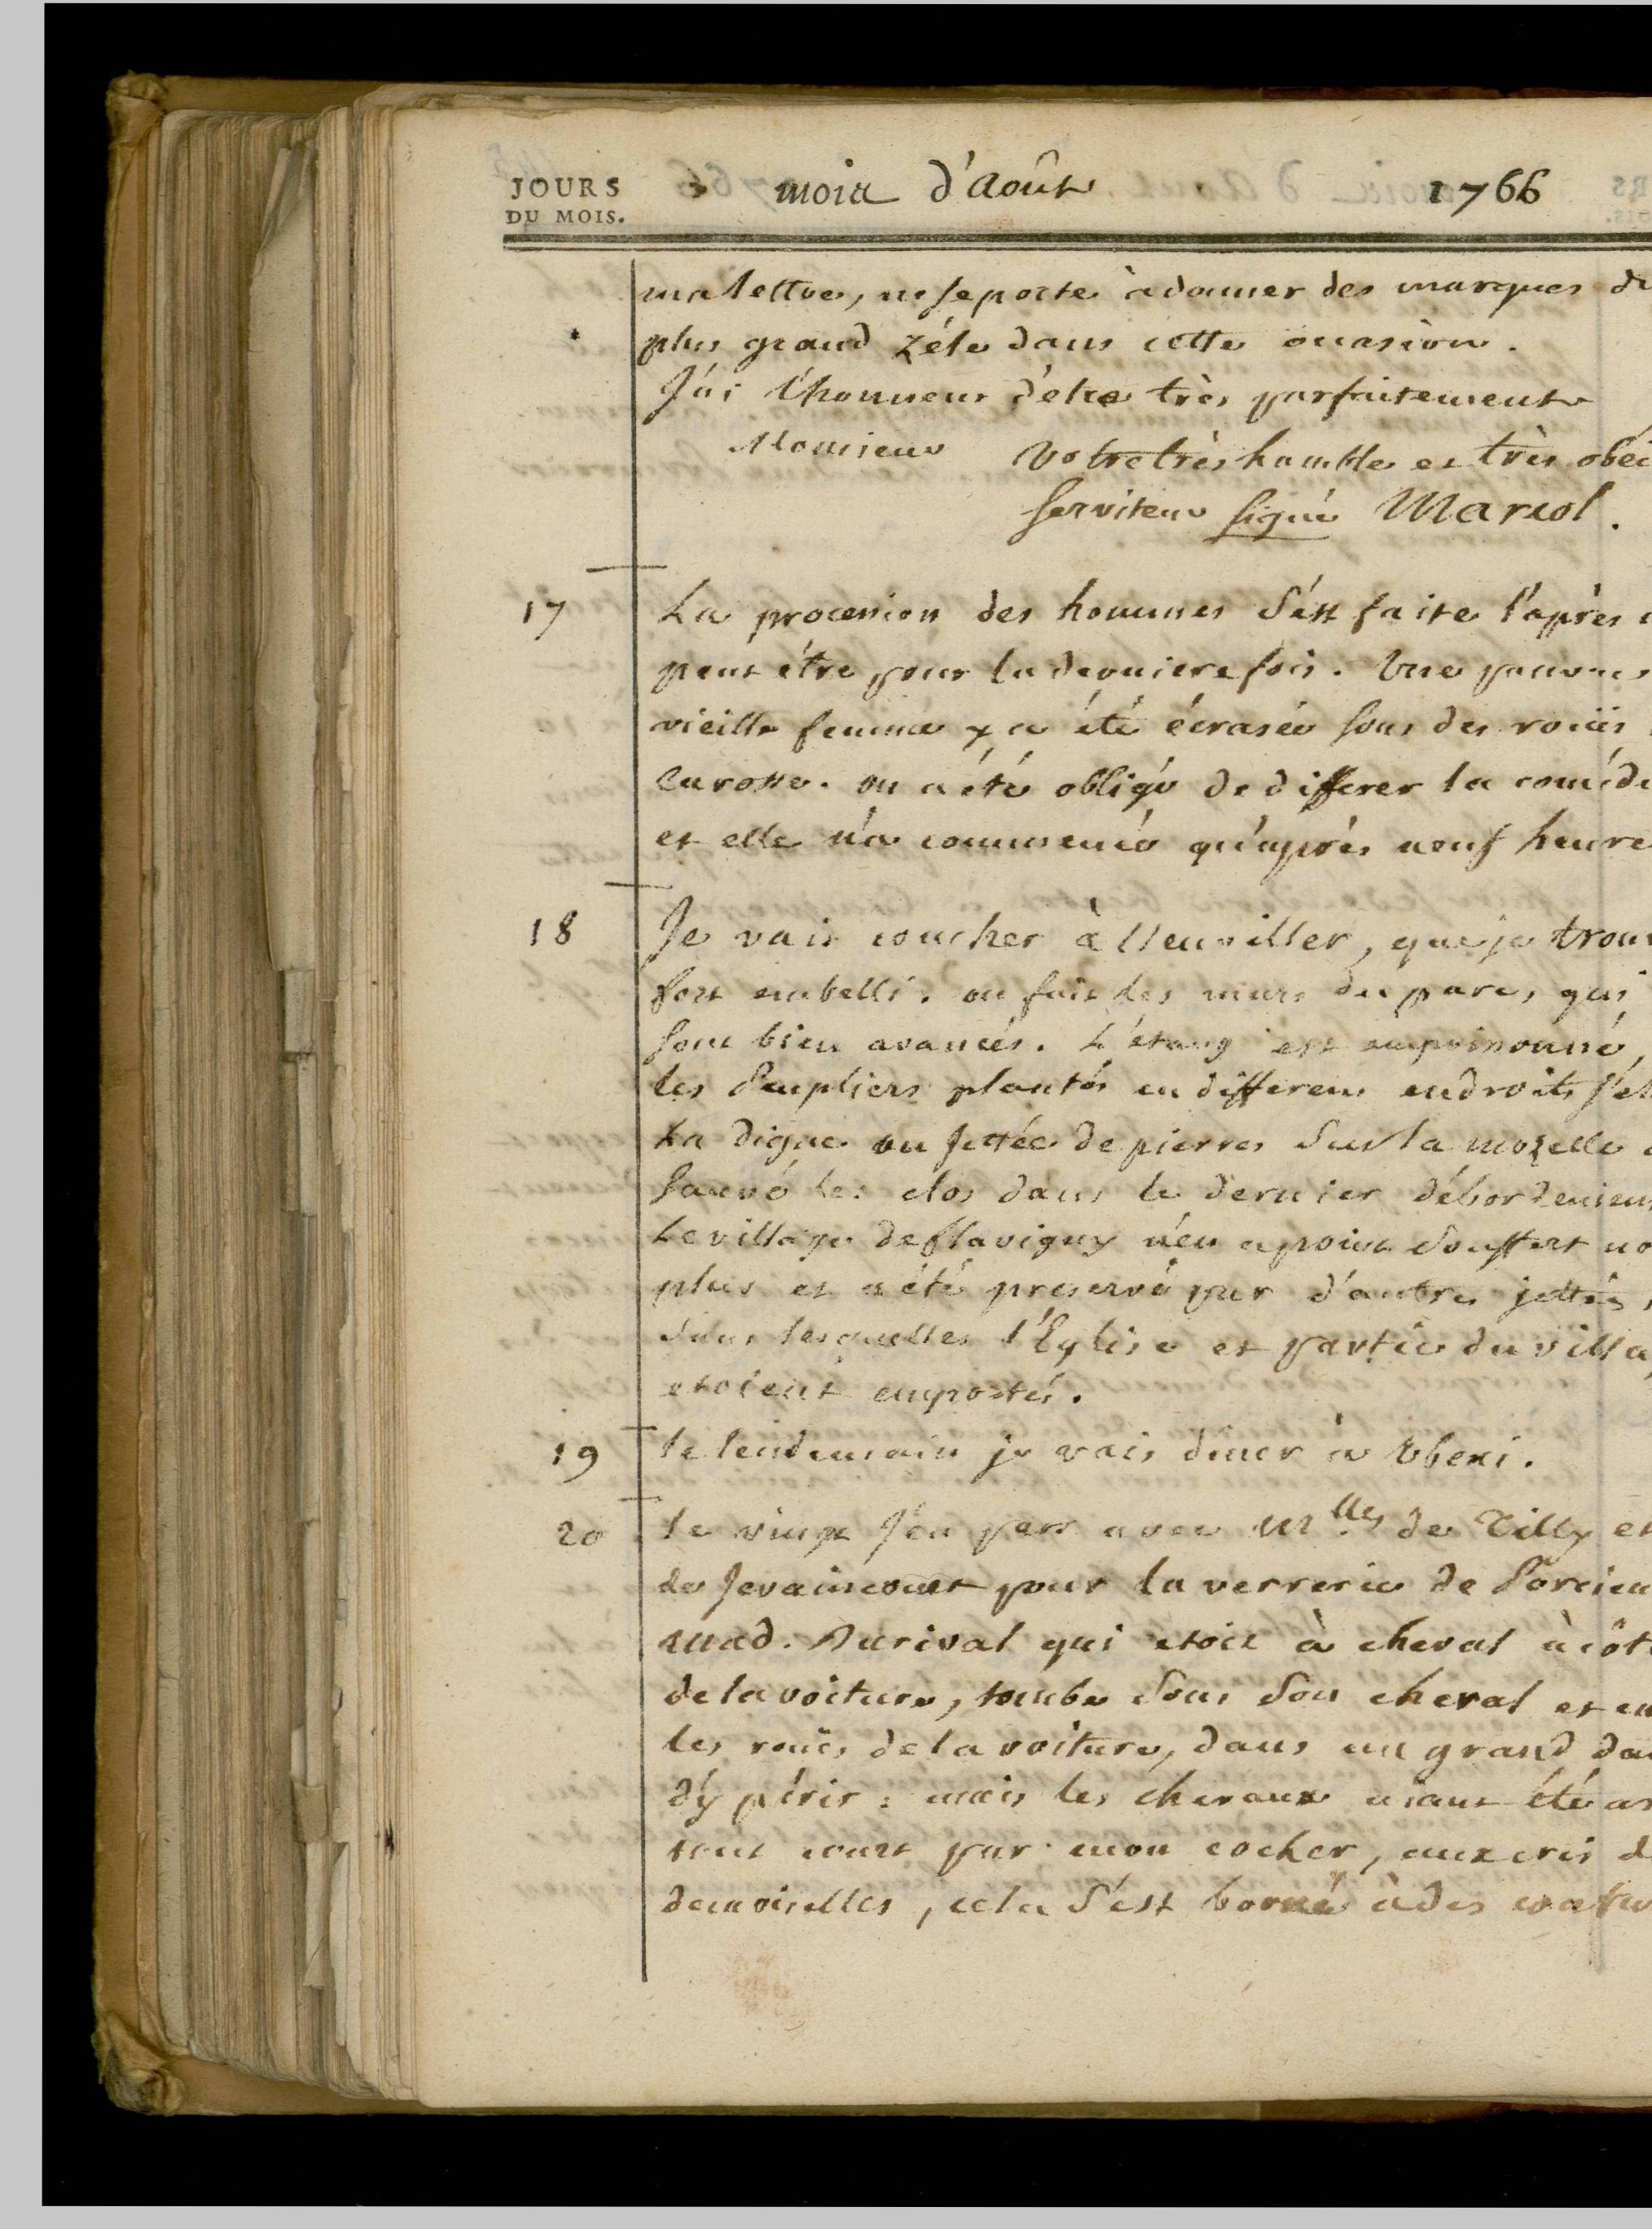 JOURS
DU MOIS.
mois d'Août 1766
ma lettre, ne se porte à donner des marques du
plus grand zéle dans cette occasion.
J'ai l'honneur d'etre très parfaitement
Monsieur Votre très humble et très obéi
Serviteur signé Marcol.
17 La procession des hommes s'est faite l'après
peut être pour la derniere fois. Une pauvre
vieille femme y a été écrasée sous des roües
Carosse. on a été obligé de differer la coméd
et elle n'a commencé qu'après neuf heure
18 Je vais coucher à Neuviller, que je trouv
fort embelli. on fait les murs du parc, qui
sont bien avancés. L'étang est empoissonné,
les Peupliers plantés en differens endroits
La digue ou jettée de pierres sur la mozelle a
sauvé les clos dans le dernier débordement
Le village de flavigny n'en a point souffert no
plus et a été preservé par d'autres jettées,
sans lesquelles l'Eglise et partie du villa
etoient emportés.
19 le lendemain je vais dîner à Ubexi.
20 le vingt j'en pars avec M.lles de Tilly et
de Jevaincourt pour la verrerie de Porcieu
mad. Durival qui etoit à cheval à côt
de la voiture, tombe sous son cheval et en
les roües de la voiture, dans un grand da
d'y périr: mais les chevaux aiant été ar
tout court par mon cocher, aux cris d
demoiselles, cela s'est borné à des contu